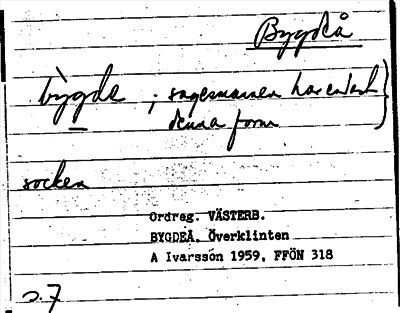 Bygdeå
bỳgde ; sagesmannen har endast }
denna form
socken
Ordreg. VÄSTERB.
BYGDEÅ, Överklinten
A Ivarsson 1959, FFÖN 318
s. 7